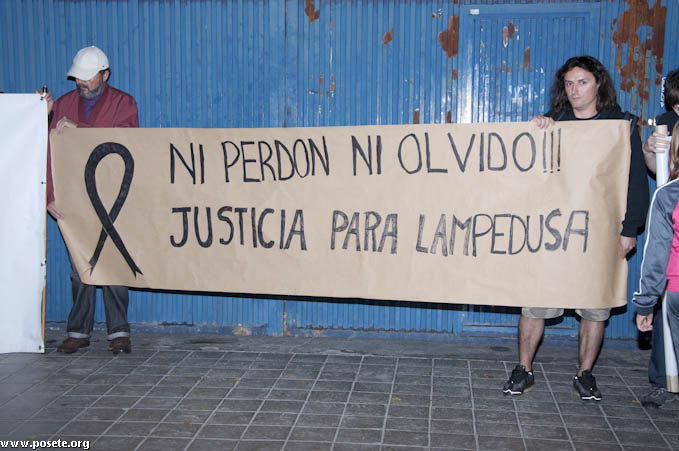 NI PERDON NI OLVIDO!!!
JUSTICIA PARA LAMPEDUSA
www.posete.org